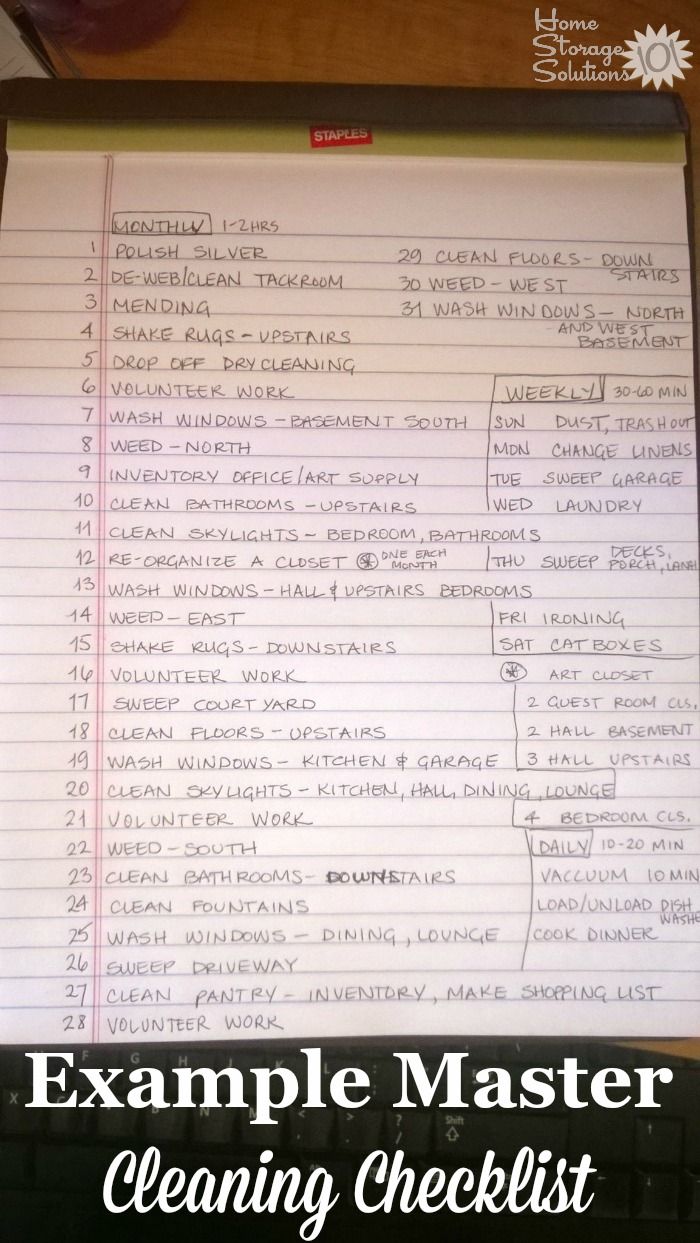 Home
Storage
Solutions 101
STAPLES
MONTHLY 1-2HRS
1 POLISH SILVER
2 DE-WEB/CLEAN TACKROOM
3 MENDING
4 SHAKE RUGS - UPSTAIRS
5 DROP OFF DRY CLEANING
6 VOLUNTEER WORK
7 WASH WINDOWS - BASEMENT SOUTH
8 WEED - NORTH
9 INVENTORY OFFICE/ART SUPPLY
10 CLEAN BATHROOMS - UPSTAIRS
11 CLEAN SKYLIGHTS - BEDROOM, BATHROOMS
12 RE-ORGANIZE A CLOSET * ONE EACH
MONTH
13 WASH WINDOWS - HALL & UPSTAIRS BEDROOMS
14 WEED - EAST
15 SHAKE RUGS - DOWNSTAIRS
16 VOLUNTEER WORK
17 SWEEP COURTYARD
18 CLEAN FLOORS - UPSTAIRS
19 WASH WINDOWS - KITCHEN & GARAGE
20 CLEAN SKYLIGHTS - KITCHEN, HALL, DINING, LOUNGE
21 VOLUNTEER WORK
22 WEED - SOUTH
23 CLEAN BATHROOMS - DOWNSTAIRS
24 CLEAN FOUNTAINS
25 WASH WINDOWS - DINING, LOUNGE
26 SWEEP DRIVEWAY
27 CLEAN PANTRY - INVENTORY, MAKE SHOPPING LIST
28 VOLUNTEER WORK
29 CLEAN FLOORS - DOWN
STAIRS
30 WEED - WEST
31 WASH WINDOWS - NORTH
AND WEST
BASEMENT
WEEKLY 30-60 MIN
SUN DUST, TRASH OUT
MON CHANGE LINENS
TUE SWEEP GARAGE
WED LAUNDRY
THU SWEEP DECKS,
PORCH, LANAI
FRI IRONING
SAT CAT BOXES
* ART CLOSET
2 GUEST ROOM CLS.
2 HALL BASEMENT
3 HALL UPSTAIRS
4 BEDROOM CLS.
DAILY 10-20 MIN
VACCUUM 10 MIN
LOAD/UNLOAD DISH
WASHE
COOK DINNER
Example Master
Cleaning Checklist